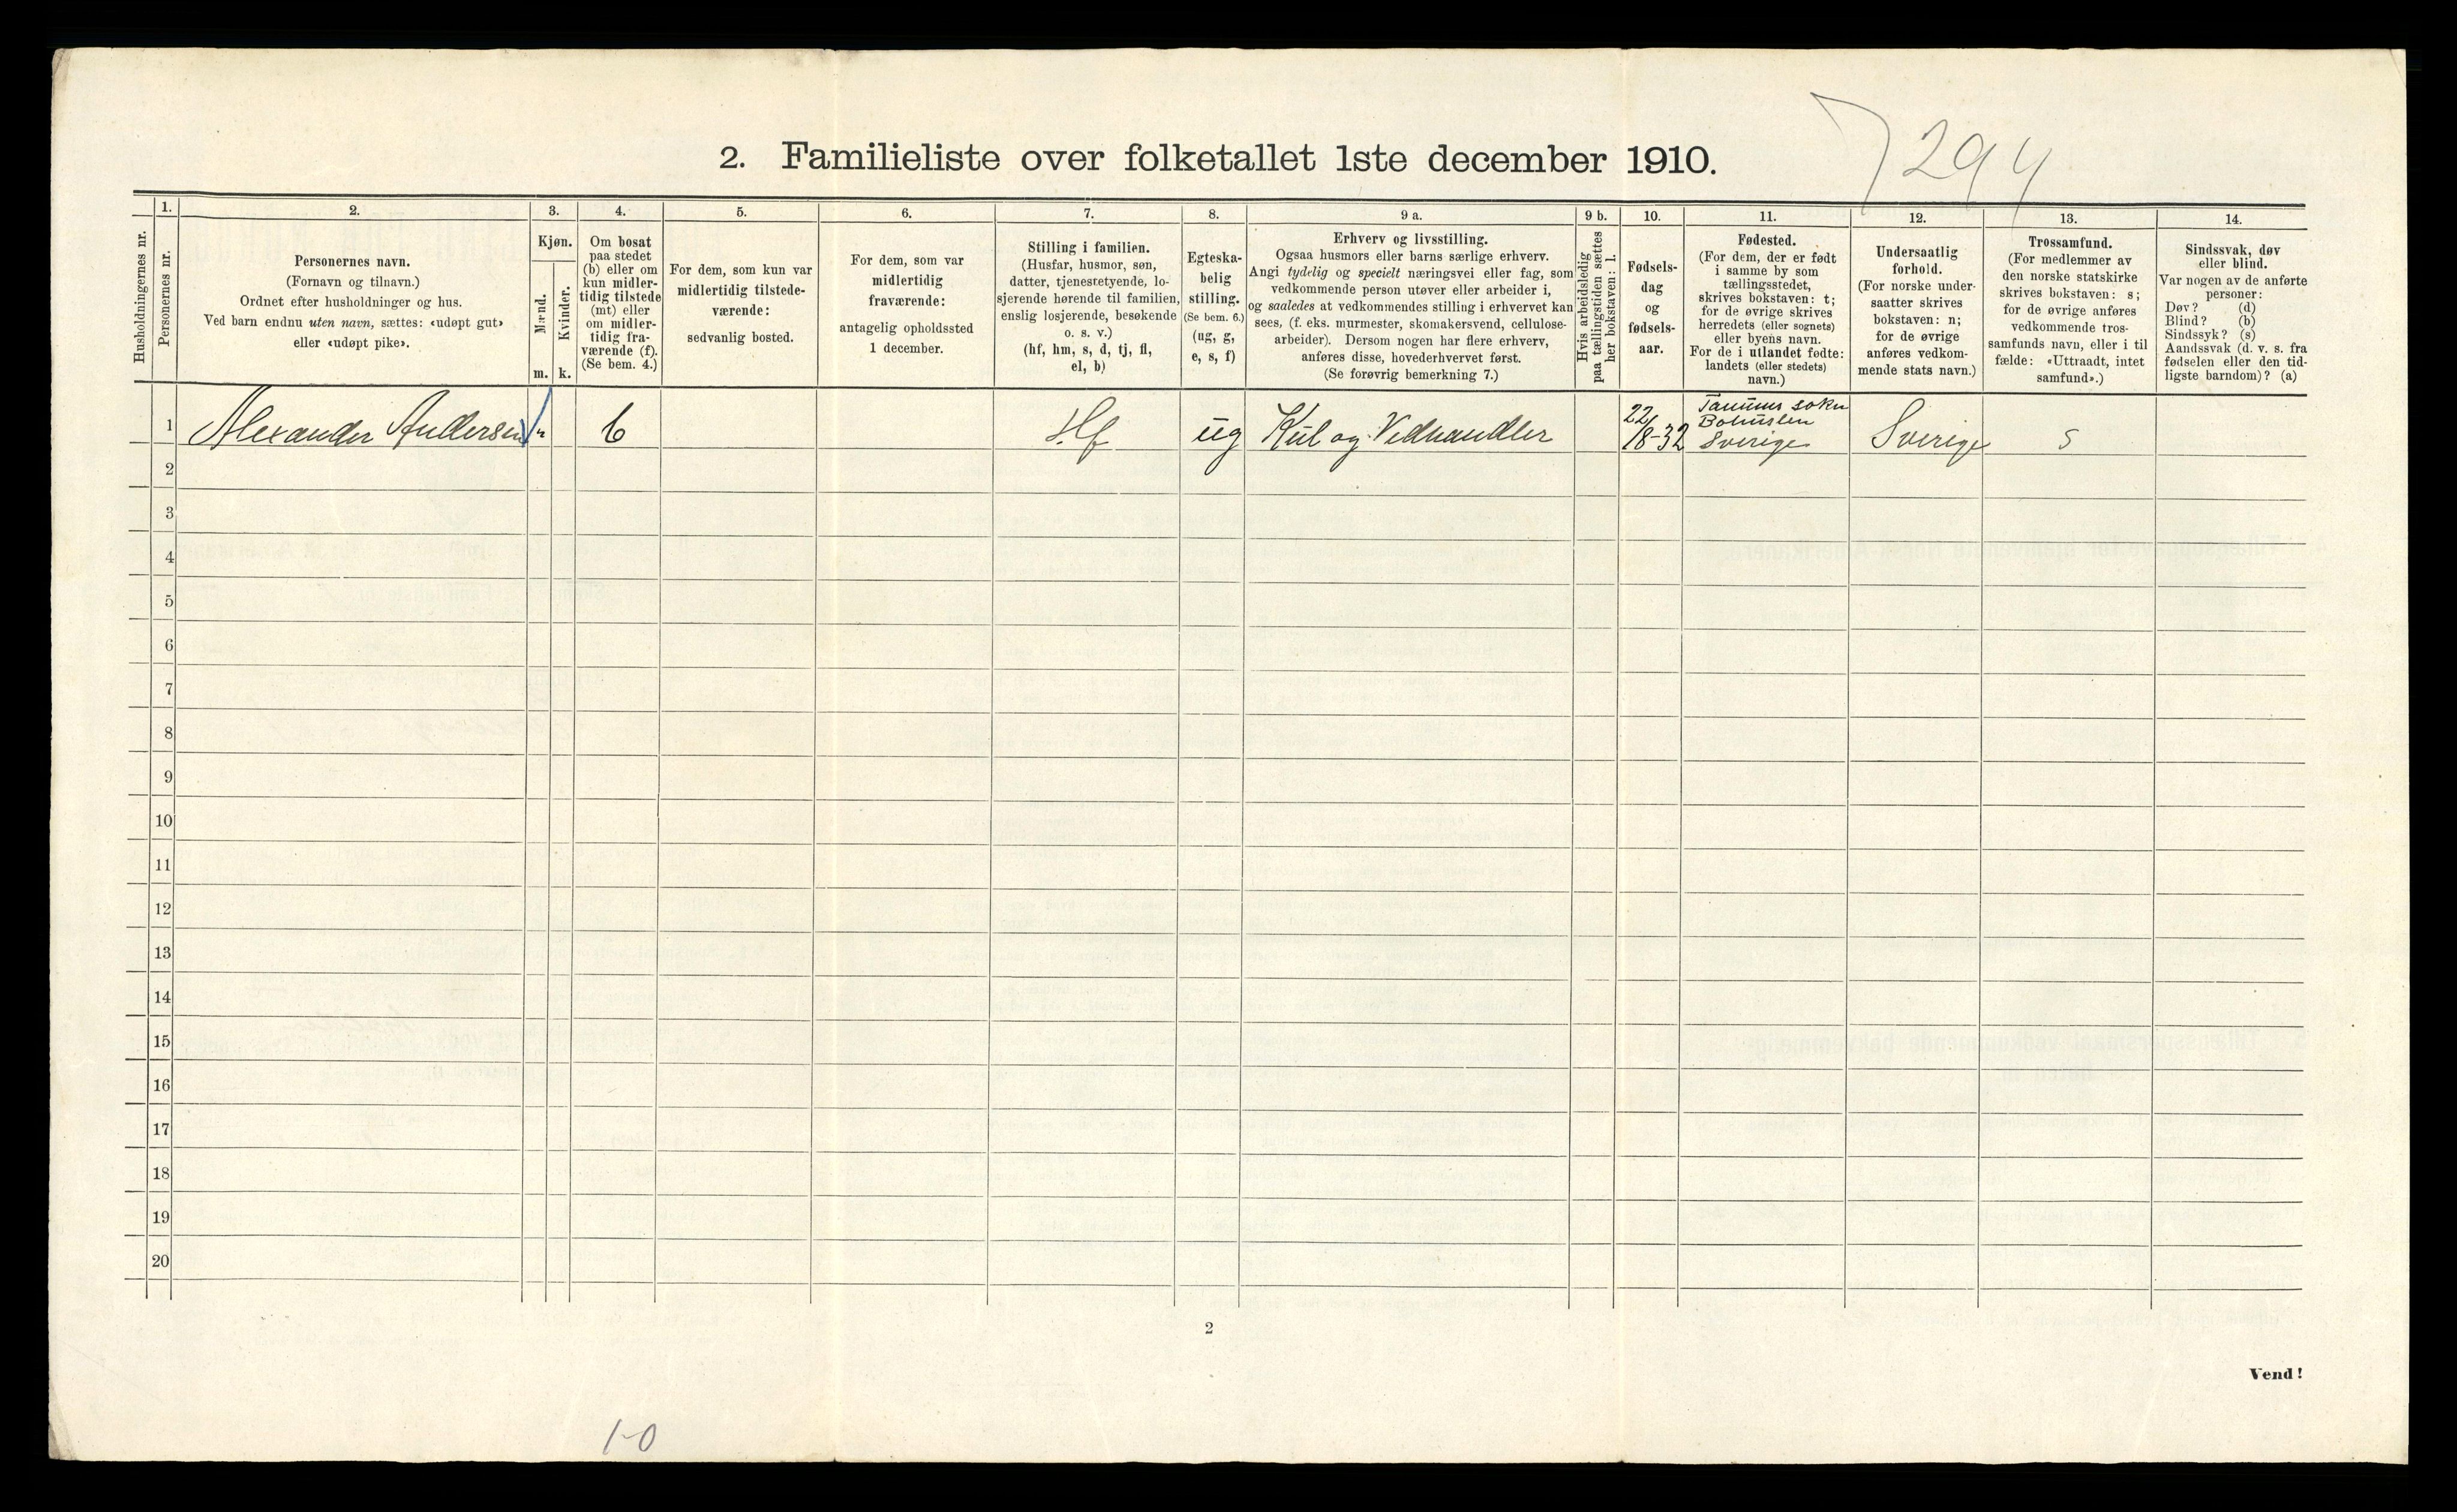 7294
2. Familieliste over folketallet 1ste december 1910.
Husholdningernes nr.
1.
Personernes nr.
2.
Personernes navn.
(Fornavn og tilnavn.)
Ordnet efter husholdninger og hus.
Ved barn endnu uten navn, sættes: «udøpt gut»
eller «udøpt pike».
3.
Kjøn.
Mænd.
Kvinder.
m. k.
4.
Om bosat
paa stedet
(b) eller om
kun midler-
tidig tilstede
(mt) eller
om midler-
tidig fra-
værende (f).
(Se bem. 4.)
5.
For dem, som kun var
midlertidig tilstede-
værende:
sedvanlig bosted.
6.
For dem, som var
midlertidig
fraværende:
antagelig opholdssted
1 december.
7.
Stilling i familien.
(Husfar, husmor, søn,
datter, tjenestetyende, lo-
sjerende hørende til familien,
enslig losjerende, besøkende
o. s. v.)
(hf, hm, s, d, tj, fl,
el, b)
8.
Egteska-
belig
stilling.
(Se bem. 6.)
(ug, g,
e, s, f)
9 a.
Erhverv og livsstilling.
Ogsaa husmors eller barns særlige erhverv.
Angi tydelig og specielt næringsvei eller fag, som
vedkommende person utøver eller arbeider i,
og saaledes at vedkommendes stilling i erhvervet kan
sees, (f. eks. murmester, skomakersvend, cellulose-
arbeider). Dersom nogen har flere erhverv,
anføres disse, hovederhvervet først.
(Se forøvrig bemerkning 7.)
9 b.
Hvis arbeidsledig
paa tællingstiden sættes
her bokstaven: l.
10.
Fødsels-
dag
og
fødsels-
aar.
11.
Fødested.
(For dem, der er født
i samme by som
tællingsstedet,
skrives bokstaven: t;
for de øvrige skrives
herredets (eller sognets)
eller byens navn.
For de i utlandet fødte:
landets (eller stedets)
navn.)
12.
Undersaatlig
forhold.
(For norske under-
saatter skrives
bokstaven: n;
for de øvrige
anføres vedkom-
mende stats navn.)
13.
Trossamfund.
(For medlemmer av
den norske statskirke
skrives bokstaven: s;
for de øvrige anføres
vedkommende tros-
samfunds navn, eller i til
fælde: «Uttraadt, intet
samfund».)
14.
Sindssvak, døv
eller blind.
Var nogen av de anførte
personer:
Døv? (d)
Blind? (b)
Sindssyk? (s)
Aandssvak (d. v. s. fra
fødselen eller den tid-
ligste barndom)? (a)
1 Alexander Andersen m b Hf ug Kul og Vedhandler 22/8-32 Tanums sokn
Bohuslen
Sverige Sverige s
2
3
4
5
6
7
8
9
10
11
12
13
14
15
16
17
18
19
20
2
Vend!
1-0